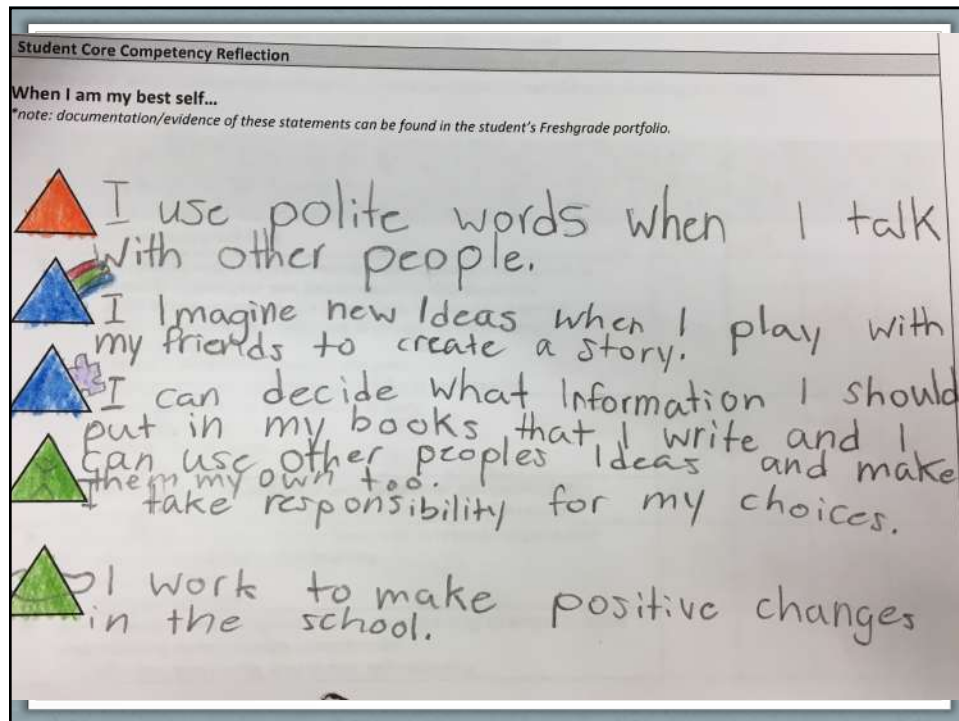 Student Core Competency Reflection
When I am my best self...
*note: documentation/evidence of these statements can be found in the student's Freshgrade portfolio.
I use polite words when I talk
with other people.
I Imagine new Ideas when I play with
my friends to create a story.
I can decide what Information I should
put in my books that I write and I
can use other peoples Ideas and make
them my own too.
I take responsibility for my choices.
I work to make positive changes
in the school.